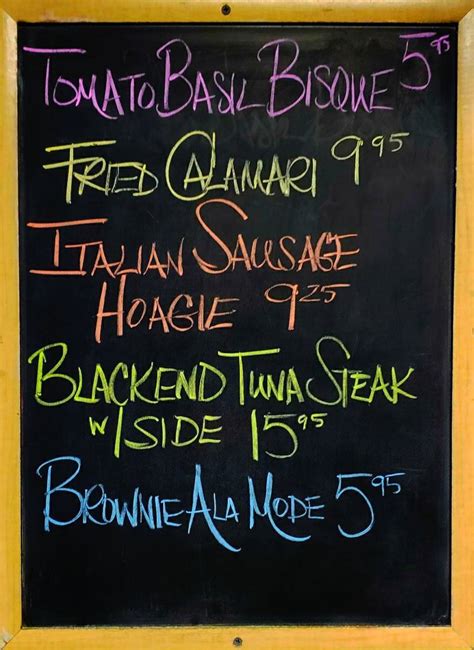 TOMATO BASIL BISQUE 5.95
FRIED CALAMARI 9.95
ITALIAN SAUSAGE
HOAGIE 9.25
BLACKEND TUNA STEAK
W/SIDE 15.95
BROWNIE ALA MODE 5.95